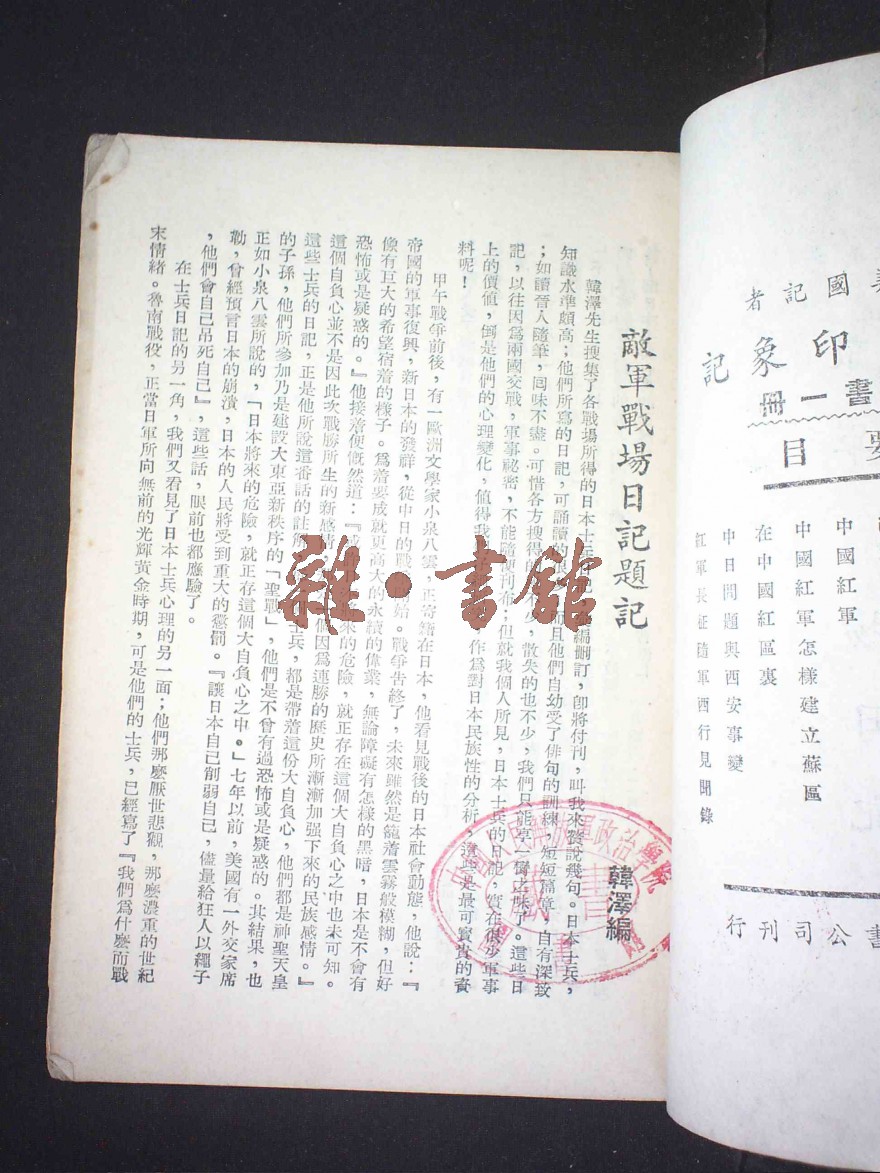 敵軍戰場日記題記
韓澤編
韓澤先生搜集了各戰場所得的日本士兵 編刪訂,卽將付刊,叫我來 說幾句。日本士兵,
知識水準頗高;他們所寫的日記,可誦讀的 而且他們自幼受了俳句的訓練,短短篇章,自有深致
;如讀晉人隨筆,囘味不盡。可惜各方搜得的 不少,散失的也不少,我們只能享一臠之味了。這些日
記,以往因爲兩國交戰,軍事祕密,不能隨便刊布;但就我個人所見,日本士兵的日記,實在很少軍事
上的價値,倒是他們的心理變化,値得我 作爲對日本民族性的分析,這些是最可寶貴的資
料呢!
甲午戰爭前後,有一歐洲文學家小泉八雲,正寄籍在日本,他看見戰後的日本社會動態,他說:『
帝國的軍事復興,新日本的發祥,從中日的戰 始。戰爭告終了,未來雖然是籠着雲霧般模糊,但好
像有巨大的希望宿着的樣子。爲着要成就更高大的永續的偉業,無論障礙有怎樣的黑暗,日本是不會有
恐怖或是疑惑的。』他接着便慨然道:『 來的危險,就正存在這個大自負心之中也未可知。
這個自負心並不是因此次戰勝所生的新感情 個因爲連勝的歷史所漸漸加强下來的民族感情。』
這些士兵的日記,正是他所說這番話的註解 士兵,都是帶着這份大自負心,他們都是神聖天皇
的子孫,他們所參加乃是建設大東亞新秩序的「聖戰」,他們是不曾有過恐怖或是疑惑的。其結果,也
正如小泉八雲所說的,「日本將來的危險,就正存這個大自負心之中。」七年以前,美國有一外交家席
勒,曾經預言日本的崩潰,日本的人民將受到重大的懲罰。『讓日本自己削弱自己,儘量給狂人以繩子
,他們會自己吊死自己』,這些話,眼前也都應驗了。
在士兵日記的另一角,我們又看見了日本士兵心理的另一面;他們那麽厭世悲觀,那麽濃重的世紀
末情緒。魯南戰役,正當日軍所向無前的光輝黃金時期,可是他們的士兵,已經寫了『我們爲什麽而戰
雜·書館
中國人民解放軍政治學院
國記者
印象記
書一冊
要目
中國紅軍
中國紅軍怎樣建立蘇區
在中國紅區裏
中日問題與西安事變
紅軍長征隨軍西行見聞錄
書公司刊行